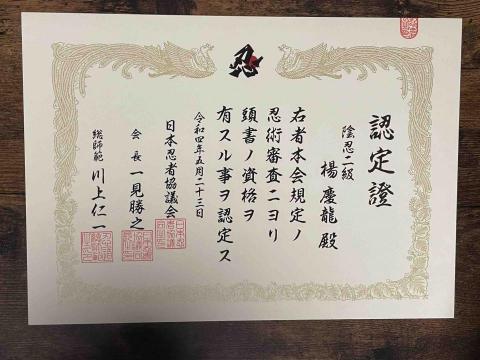 忍
認定證
陰忍二級
楊慶龍殿
右者本会規定ノ
忍術審査ニヨリ
頭書ノ資格ヲ
有スル事ヲ認定ス
令和四年五月二十三日
日本忍者協議会
会長 一見勝之
総師範 川上仁一